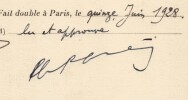 Fait double à Paris, le quinze Juin 1928.
lu et approuvé